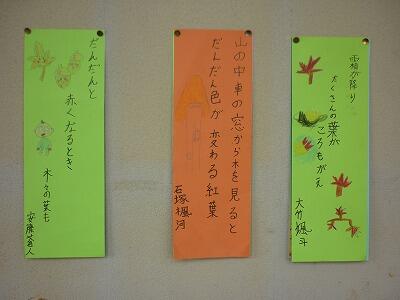 霜が降り
たくさんの葉が
ころもがえ
大竹颯斗
山の中車の窓から木を見ると
だんだん色が変わる紅葉
石塚楓河
だんだんと
赤くなるとき
木々の葉も
安藤